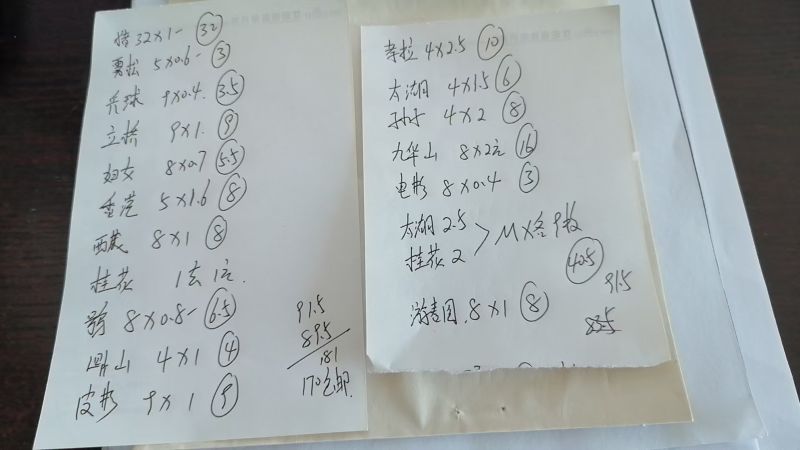 猎 32×1- 32
劲松 5×0.6- 3
乒球 9×0.4. 3.5
立桥 9×1. 9
妇女 8×0.7 5.5
香港 5×1.6 8
西藏 8×1 8
桂花 1套 1元.
8×0.8- 6.5
山 4×1 4
皮影 9×1 9
91.5
89.5
181
170包邮.
4×2.5 10
太湖 4×1.5 6
孙子 4×2 8
九华山 8×2元 16
电影 8×0.4 3
太湖 2.5
桂花 2
M×各9枚
40.5
游春图. 8×1 8
91.5